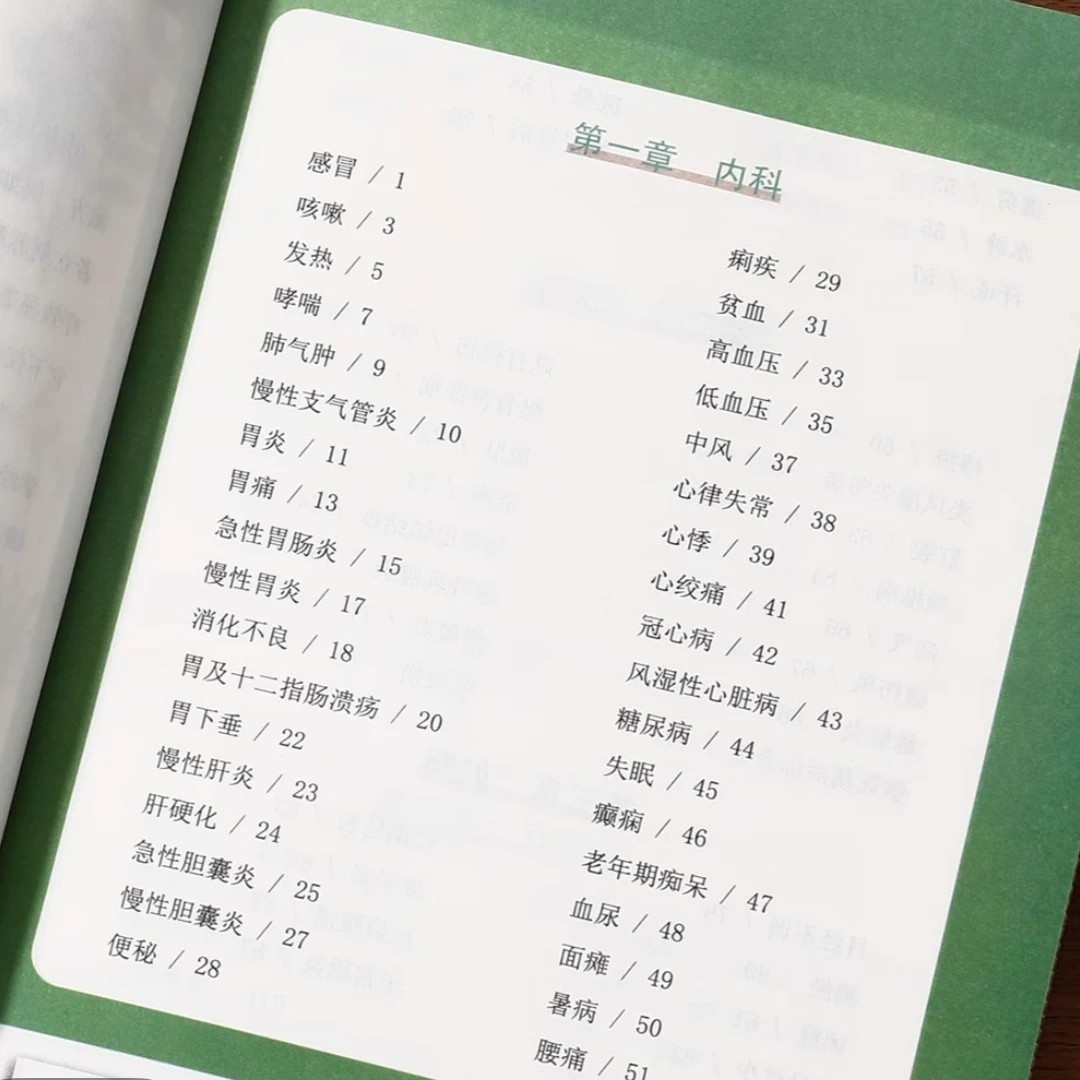 第一章 内科
感冒 / 1
咳嗽 / 3
发热 / 5
哮喘 / 7
肺气肿 / 9
慢性支气管炎 / 10
胃炎 / 11
胃痛 / 13
急性胃肠炎 / 15
慢性胃炎 / 17
消化不良 / 18
胃及十二指肠溃疡 / 20
胃下垂 / 22
慢性肝炎 / 23
肝硬化 / 24
急性胆囊炎 / 25
慢性胆囊炎 / 27
便秘 / 28
痢疾 / 29
贫血 / 31
高血压 / 33
低血压 / 35
中风 / 37
心律失常 / 38
心悸 / 39
心绞痛 / 41
冠心病 / 42
风湿性心脏病 / 43
糖尿病 / 44
失眠 / 45
癫痫 / 46
老年期痴呆 / 47
血尿 / 48
面瘫 / 49
暑病 / 50
腰痛 / 51